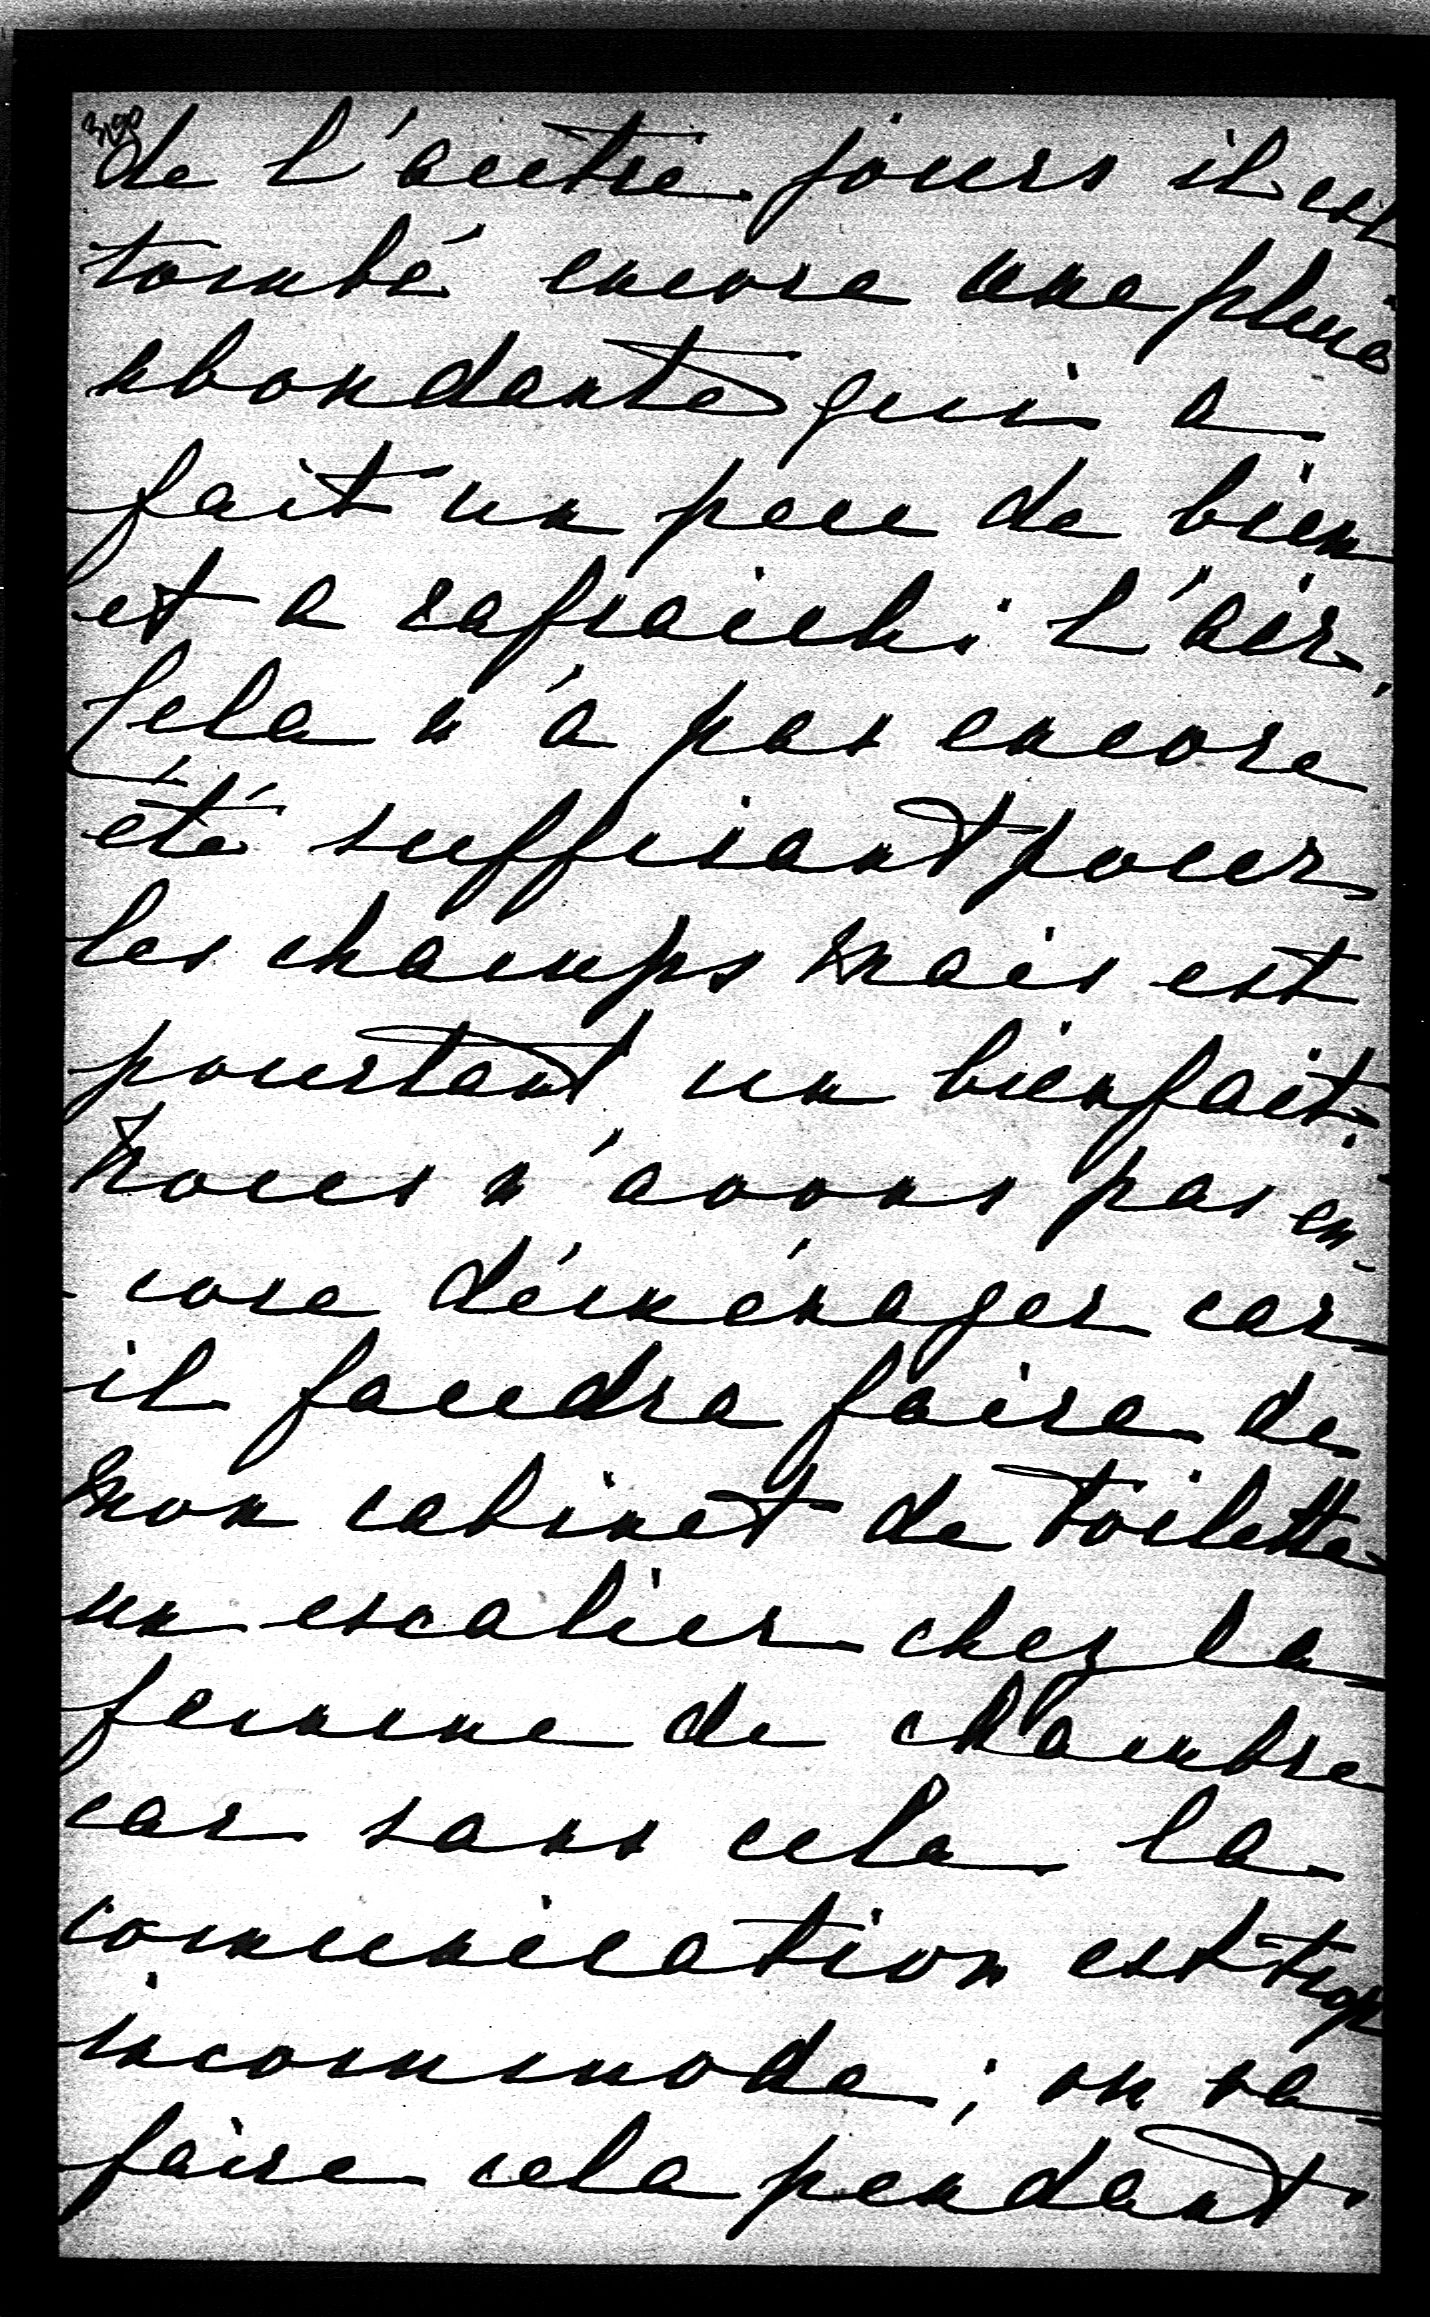 de l'autre jours il est
tombé encore une pluie
abondante qui a
fait un peu de bien
et a rafraichi l'air.
Cela n'a pas encore
été suffisant pour
les champs mais est
pourtant un bienfait.
Nous n'avons pas en-
-core déménager car
il faudra faire de
mon cabinet de toilette
un escalier chez la
femme de chambre
car sans cela la
comunication est trop
incommode; on va
faire cela pendant